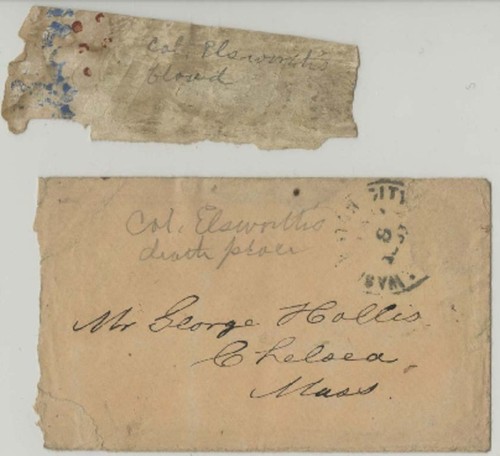 Col. Elsworth's
blood
Col. Elsworth's
death place
CITY
WAS
Mr George Hollis
Chelsea
Mass.